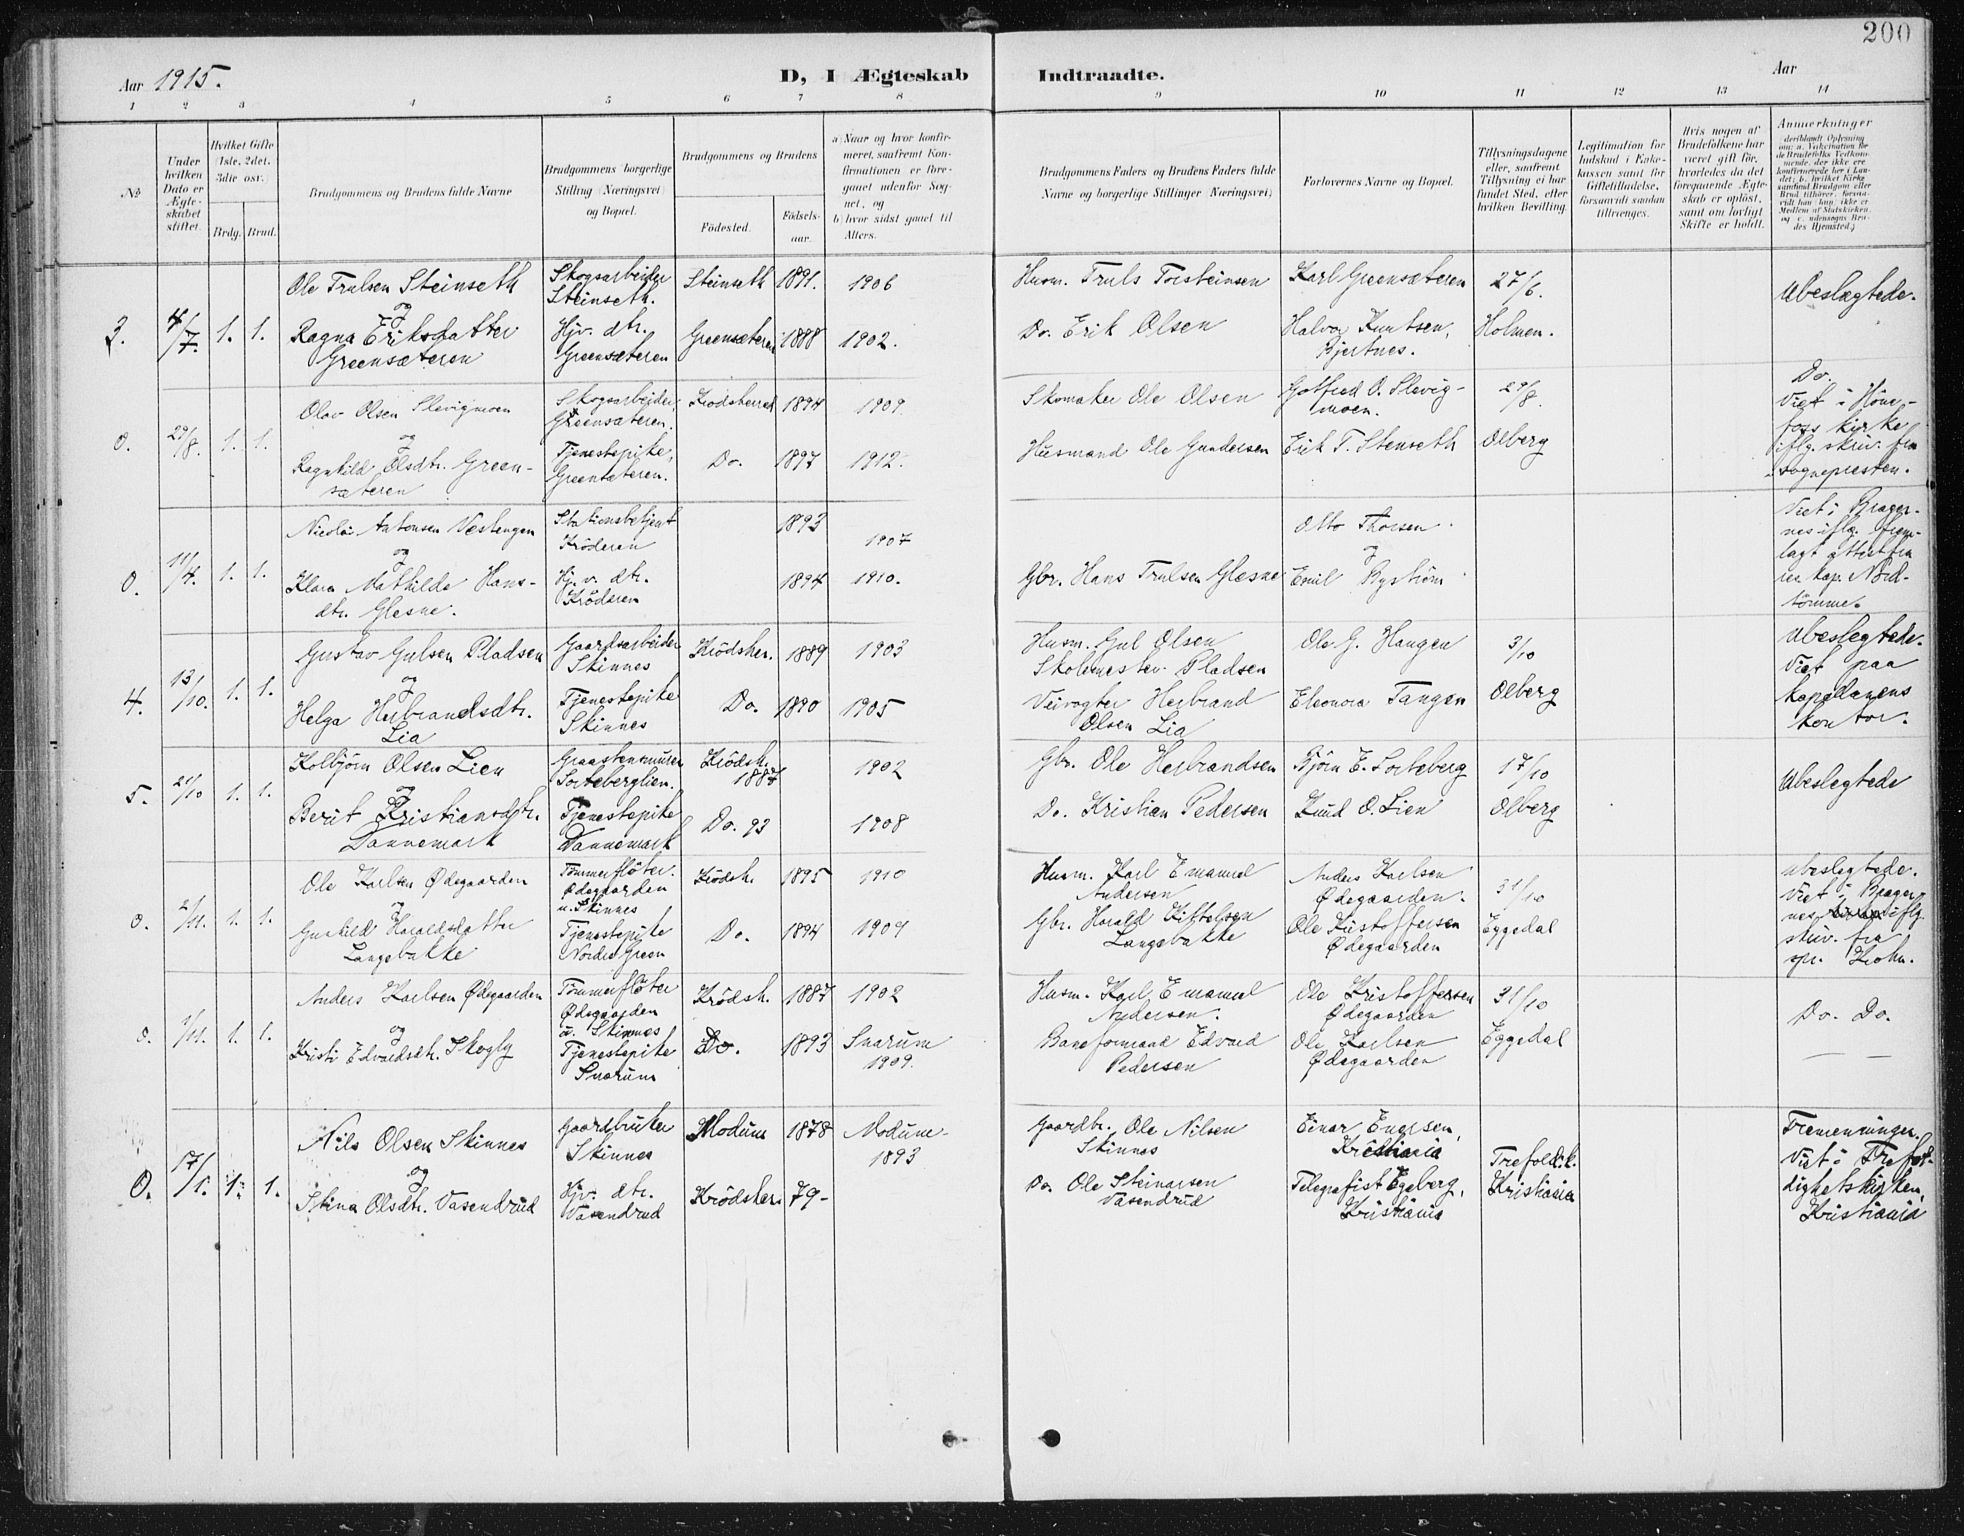 200
Aar 1915.
D, I Ægteskab
Indtraadte.
Aar
1 2 3 4 5 6 7 8
9 10 11 12 13 14
No
Under hvilken Dato er Ægteskabet stiftet.
Hvilket Gifte (1ste, 2det, 3die osv.
Brdg. Brud.
Brudgommens og Brudens fulde Navne
Brudgommens borgerlige Stilling (Næringsvei) og Bopæl.
Brudgommens og Brudens
Fødested.
Fødselsaar.
a) Naar og hvor konfirmeret, saafremt Konfirmationen er foregaaet udenfor Sognet, og
b) hvor sidst gaaet til Alters.
Brudgommens Faders og Brudens Faders fulde Navne og borgerlige Stillinger (Næringsvei)
Forlovernes Navne og Bopæl.
Tillysningsdagene eller, saafremt Tillysning ei har fundet Sted, efter hvilken Bevilling.
Legitimation for Indskud i Enkekassen samt for Giftetilladelse, forsaavidt saadan tiltrænges.
Hvis nogen af Brudefolkene har været gift før, hvorledes da det foregaaende Ægteskab er opløst, samt om lovligt Skifte er holdt.
Anmerkninger
3. 4/7. 1. 1. Ole Trulsen Steinseth Skogsarbeider Steinseth. Steinseth 1891. 1906 Husm. Truls Torsteinsen Karl Greensæteren 27/6. Ubeslægtede.
og
Ragna Eriksdatter Greensæteren Hjv. dtr. Greensæteren Greensæteren 1888 1902. Do. Erik Olsen Halvor Knutsen, Bjertnes. Holmen.
0. 29/8. 1. 1. Olav Olsen Slevigmoen Skogsarbeider, Greensæteren. Krødsherred 1894 1909. Skomaker Ole Olsen Gotfred O. Slevigmoen. 29/8. Do. Viet i Hønefoss kirke iflg. skriv. fra sognepresten.
og
Ragnhild Olsdtr. Greensæteren Tjenestepike, Greensæteren. Do. 1897 1912. Husmand Ole Gundersen Erik T. Stenseth Olberg
0. 11/4. 1. 1. Nicolai Antonsen Vestengen Stationsbetjent Krøderen 1893 1907 Otto Thorsen Viet i Bragernes iflg. fremlagt attest fra res. kap. Nordtømme.
og
Klara Mathilde Hansdtr. Glesne. Hj. v. dtr. Krøderen 1894 1910. Gbr. Hans Trulsen Glesne Emil Byström
4. 13/10. 1. 1. Gustav Gulsen Pladsen Gaardsarbeider Skinnes Krødsher. 1889 1903 Husm. Gul Olsen Pladsen Ole G. Haugen 3/10 Ubeslegtede. Viet paa kapellanens kontor.
og
Helga Herbrandsdtr. Lia Tjenestepike Skinnes Do. 1890 1905 Veivogter Herbrand Olsen Lia Eleonora Tangen Olberg
5. 21/10 1. 1. Kolbjørn Olsen Lien Graastensmurer Sorteberglien. Krødsh. 1887 1902 Gbr. Ole Herbrandsen Bjørn E. Sorteberg 17/10 Ubeslegtede
og
Berit Kristiansdtr. Dannemark Tjenestepike Dannemark Do. 93 1908 Do. Kristian Pedersen Knud O. Lien Olberg
0. 2/11. 1. 1. Ole Karlsen Ødegaarden Tømmerfløter. Ødegaarden u. Skinnes Krødsh. 1895 1910 Husm. Karl Emanuel Andersen Anders Karlsen Ødegaarden. 31/10 Ubeslegtede. Viet i Bragernes iflg. skriv. fra spr. Krohn.
og
Gunhild Haraldsdatter Langebakke Tjenestepike Nordre Green Do. 1894 1909 Gbr. Harald Kittelsen Langebakke Ole Kristoffersen Ødegaarden Eggedal
0. 2/11. 1. 1. Anders Karlsen Ødegaarden Tømmerfløter Ødegaarden u. Skinnes Krødsh. 1887 1902 Husm. Karl Emanuel Andersen. Ole Kristoffersen Ødegaarden 31/10 Do. Do.
og
Kristi Edvardsdtr. Skogly Tjenestepike Snarum Do. 1893 Snarum 1909. Baneformand Edvard Pedersen Ole Karlsen Ødegaarden Eggedal — —
0. 17/1. 1. 1. Nils Olsen Skinnes Gaardbruker Skinnes Modum 1878 Modum 1893 Gaardbr. Ole Nilsen Skinnes Einar Engesen, Kristiania Trefoldk. Kristiania Tremenninger. Viet i Trefoldighetskirken, Kristiania
og
Stina Olsdtr. Vasendrud Hjv. dtr. Vasendrud Krødsher. 79- Do. Ole Steinarsen Vasendrud Telegrafist Egeberg, Kristiania